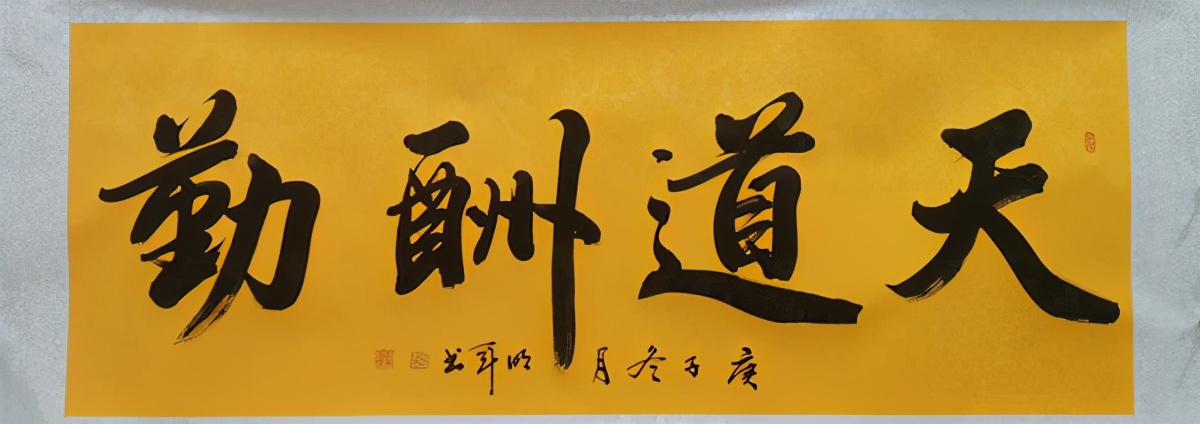 天道酬勤
庚子冬月明军书